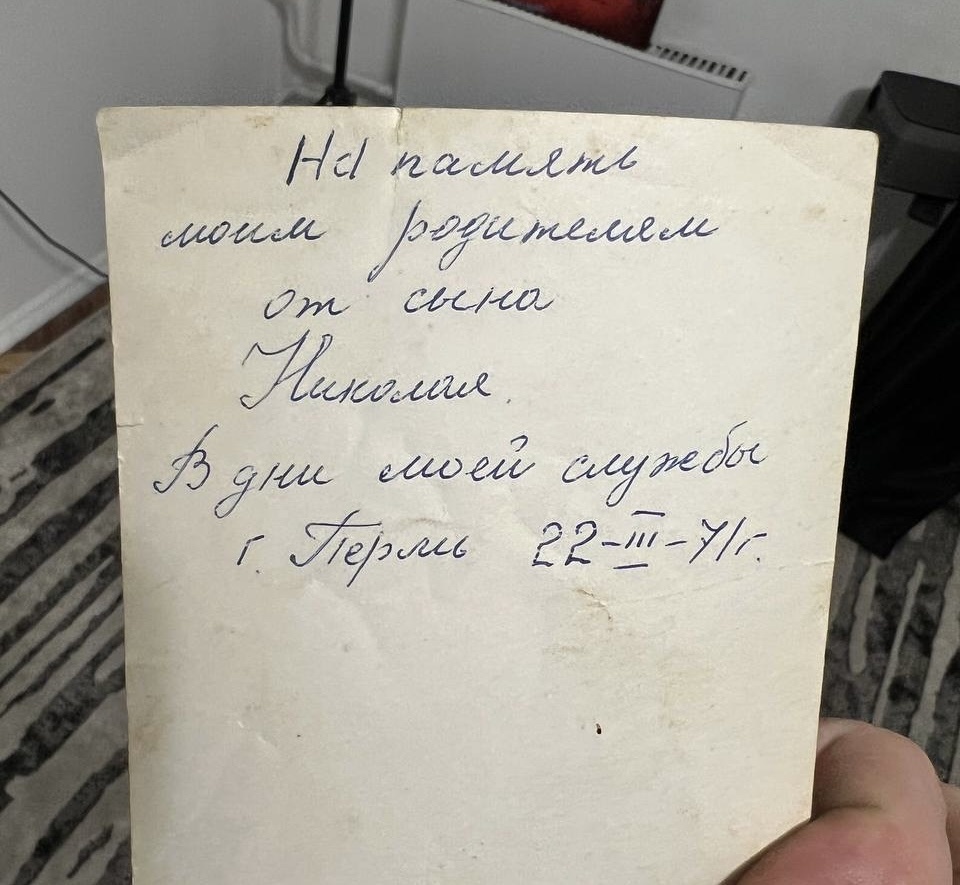 На память
моим родителям
от сына
Николая.
В дни моей службы
г. Пермь 22-III-71г.